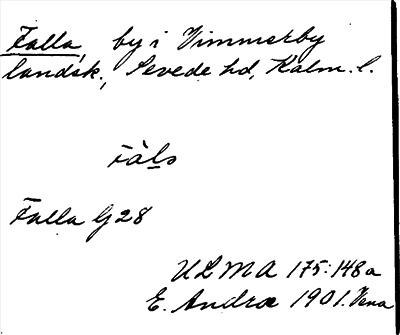 Falla, by i Vimmerby
landsk., Sevede hd, Kalm. l.
Falla G 28
ULMA 175:148a
E. Andræ 1901. Vena